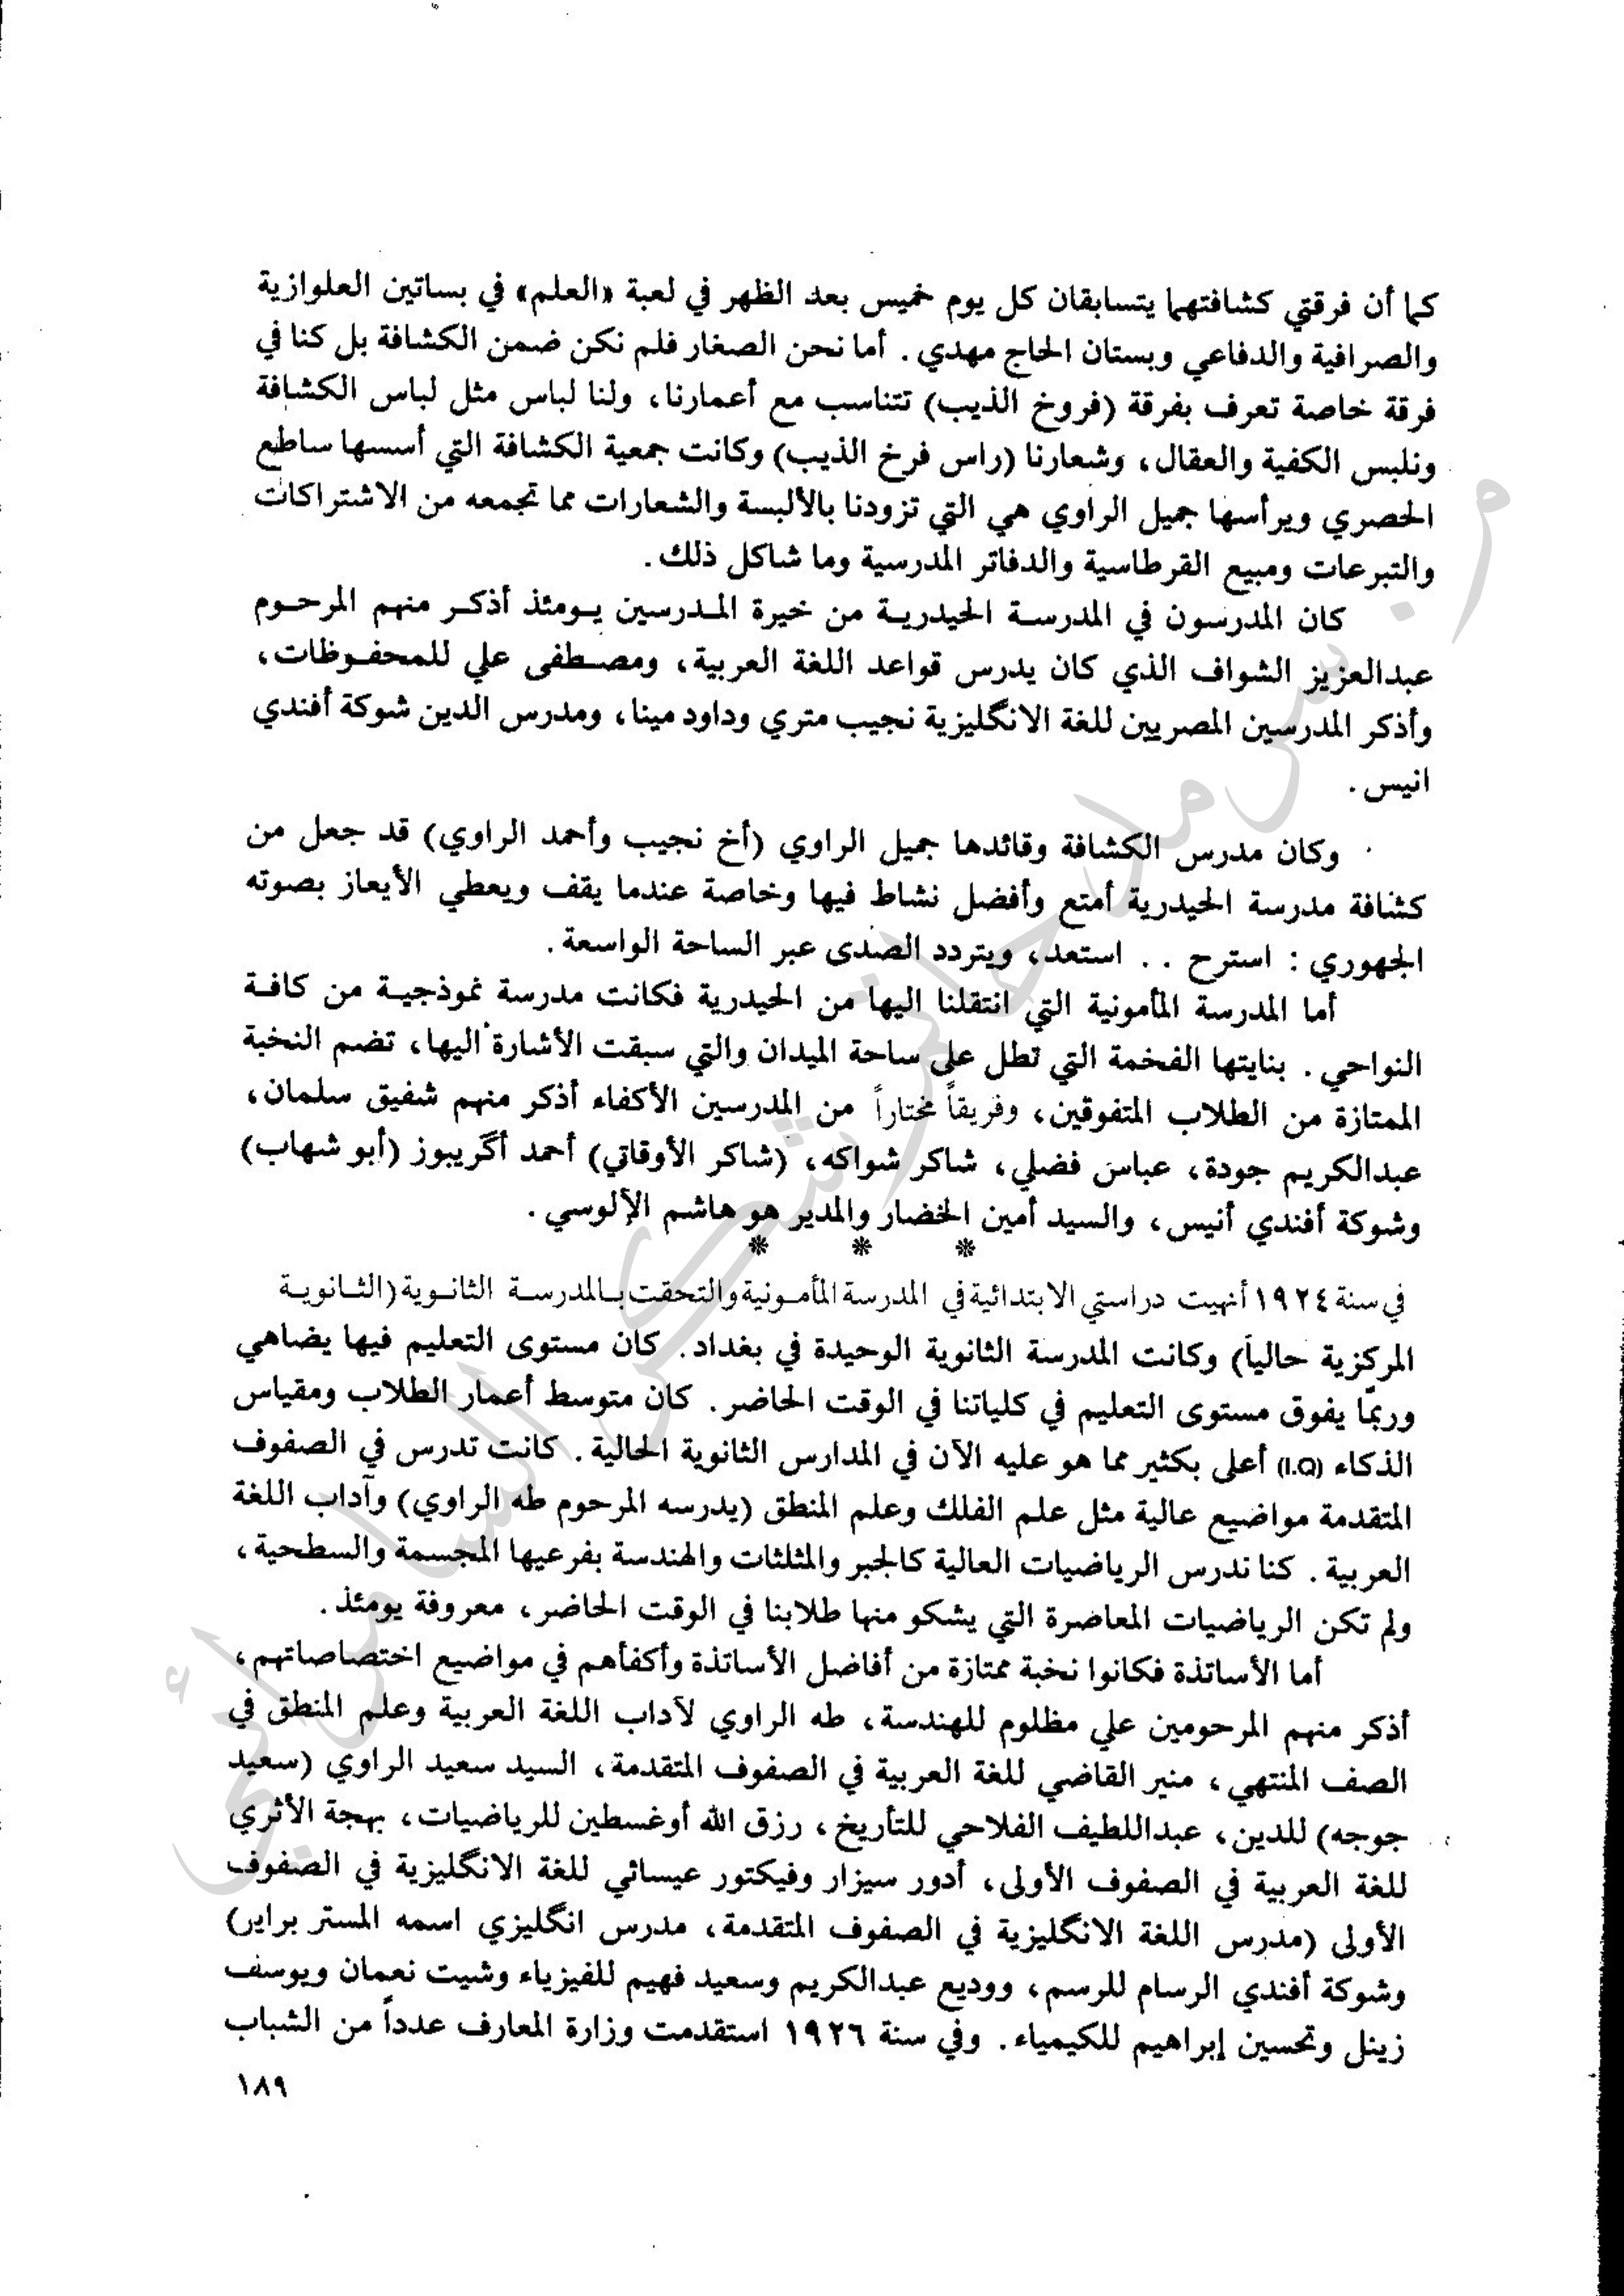 كما أن فرقتي كشافتهما يتسابقان كل يوم خميس بعد الظهر في لعبة «العلم» في بساتين العلوازية
والصرافية والدفاعي وبستان الحاج مهدي . أما نحن الصغار فلم نكن ضمن الكشافة بل كنا في
فرقة خاصة تعرف بفرقة (فروخ الذيب) تتناسب مع أعمارنا، ولنا لباس مثل لباس الكشافة
ونلبس الكفية والعقال، وشعارنا (راس فرخ الذيب) وكانت جمعية الكشافة التي أسسها ساطع
الحصري ويرأسها جميل الراوي هي التي تزودنا بالألبسة والشعارات مما تجمعه من الاشتراكات
والتبرعات ومبيع القرطاسية والدفاتر المدرسية وما شاكل ذلك.
كان المدرسون في المدرسة الحيدرية من خيرة المدرسين يومئذ أذكر منهم المرحوم
عبدالعزيز الشواف الذي كان يدرس قواعد اللغة العربية، ومصطفى علي للمحفوظات،
وأذكر المدرسين المصريين للغة الانگليزية نجيب متري وداود مينا، ومدرس الدين شوكة أفندي
انيس.
وكان مدرس الكشافة وقائدها جميل الراوي (أخ نجيب وأحمد الراوي) قد جعل من
كشافة مدرسة الحيدرية أمتع وأفضل نشاط فيها وخاصة عندما يقف ويعطي الأيعاز بصوته
الجهوري : استرح . . استعد، ويتردد الصدى عبر الساحة الواسعة.
أما المدرسة المأمونية التي انتقلنا اليها من الحيدرية فكانت مدرسة نموذجية من كافة
النواحي . بنايتها الفخمة التي تطل على ساحة الميدان والتي سبقت الأشارة اليها، تضم النخبة
الممتازة من الطلاب المتفوقين، وفريقاً مختاراً من المدرسين الأكفاء أذكر منهم شفيق سلمان،
عبدالكريم جودة، عباس فضلي، شاكر شواكه، (شاكر الأوقاتي) أحمد أگريبوز (أبو شهاب)
وشوكة أفندي أنيس، والسيد أمين الخضار والمدير هو هاشم الإلوسي .
* * *
في سنة ١٩٢٤ أنهيت دراستي الابتدائية في المدرسة المأمونية والتحقت بالمدرسة الثانوية (الثانوية
المركزية حالياً) وكانت المدرسة الثانوية الوحيدة في بغداد. كان مستوى التعليم فيها يضاهي
وربمّا يفوق مستوى التعليم في كلياتنا في الوقت الحاضر. كان متوسط أعمار الطلاب ومقياس
الذكاء (I.Q) أعلى بكثير مما هو عليه الآن في المدارس الثانوية الحالية. كانت تدرس في الصفوف
المتقدمة مواضيع عالية مثل علم الفلك وعلم المنطق (يدرسه المرحوم طه الراوي) وآداب اللغة
العربية . كنا ندرس الرياضيات العالية كالجبر والمثلثات والهندسة بفرعيها المجسمة والسطحية،
ولم تكن الرياضيات المعاصرة التي يشكو منها طلابنا في الوقت الحاضر، معروفة يومئذ.
أما الأساتذة فكانوا نخبة ممتازة من أفاضل الأساتذة وأكفأهم في مواضيع اختصاصاتهم،
أذكر منهم المرحومين علي مظلوم للهندسة، طه الراوي لآداب اللغة العربية وعلم المنطق في
الصف المنتهي، منير القاضي للغة العربية في الصفوف المتقدمة، السيد سعيد الراوي (سعيد
جوجه) للدين، عبداللطيف الفلاحي للتأريخ، رزق الله أوغسطين للرياضيات، بهجة الأثري
للغة العربية في الصفوف الأولى، أدور سيزار وفيكتور عيسائي للغة الانگليزية في الصفوف
الأولى (مدرس اللغة الانگليزية في الصفوف المتقدمة، مدرس انگليزي اسمه المستر براير)
وشوكة أفندي الرسام للرسم، ووديع عبدالكريم وسعيد فهيم للفيزياء وشيت نعمان ويوسف
زينل وتحسين إبراهيم للكيمياء. وفي سنة ١٩٢٦ استقدمت وزارة المعارف عدداً من الشباب
١٨٩